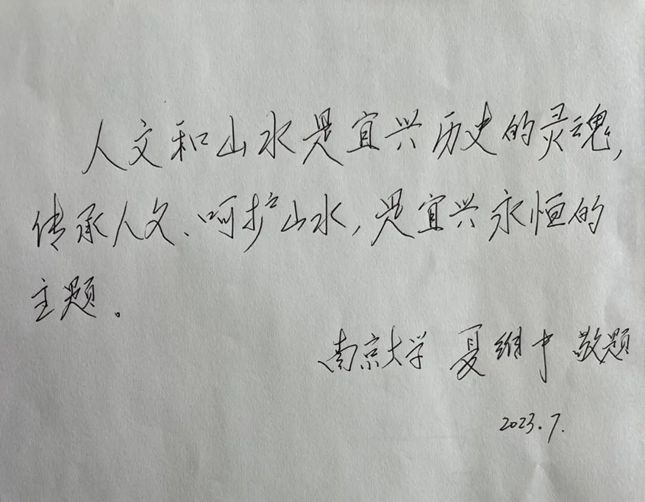 人文和山水是宜兴历史的灵魂,
传承人文、呵护山水,是宜兴永恒的
主题。
南京大学 夏维中 敬题
2023.7.